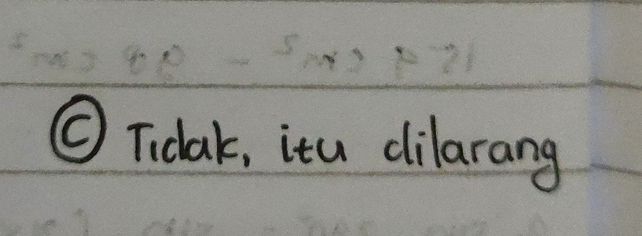 © Tidak, itu dilarang